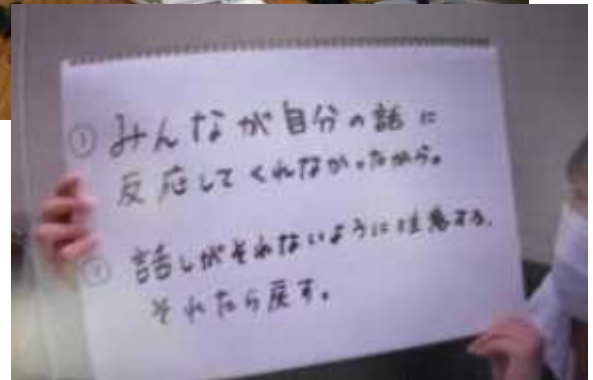 ① みんなが自分の話に
反応してくれなかったから。
② 話しがそれないように注意する。
それたら戻す。